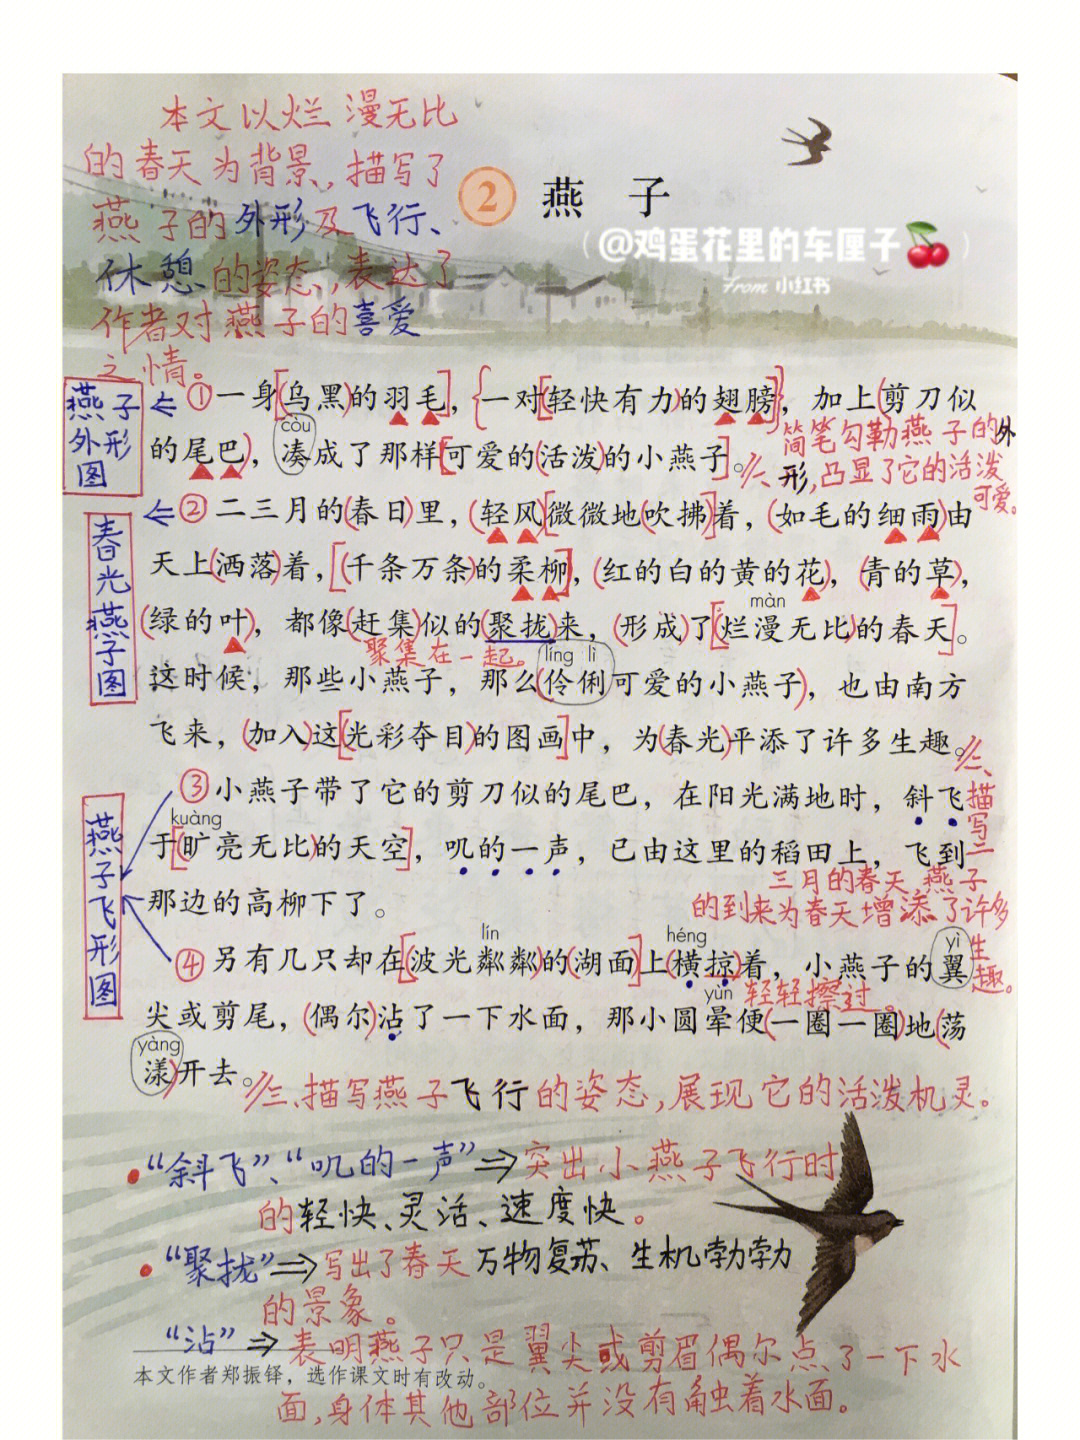 本文以烂漫无比
的春天为背景,描写了
燕子的外形及飞行、
休憩的姿态,表达了
作者对燕子的喜爱
之情。
2 燕子
@鸡蛋花里的车厘子
From 小红书
燕子
外形
图
①一身乌黑的羽毛，一对轻快有力的翅膀，加上剪刀似
còu
的尾巴，凑成了那样可爱的活泼的小燕子。
一、简笔勾勒燕子的外
形,凸显了它的活泼
可爱。
春光燕子图
②二三月的春日里，轻风微微地吹拂着，如毛的细雨由
天上洒落着，千条万条的柔柳，红的白的黄的花，青的草，
màn
绿的叶，都像赶集似的聚拢来，形成了烂漫无比的春天。
聚集在一起。
líng lì
这时候，那些小燕子，那么伶俐可爱的小燕子，也由南方
飞来，加入这光彩夺目的图画中，为春光平添了许多生趣。
二、描写二
三月的春天,燕子
的到来为春天增添了许多
生趣。
燕子飞形图
③小燕子带了它的剪刀似的尾巴，在阳光满地时，斜飞
kuàng
于旷亮无比的天空，叽的一声，已由这里的稻田上，飞到
那边的高柳下了。
lín héng yì
④另有几只却在波光粼粼的湖面上横掠着，小燕子的翼
轻轻擦过。
yùn
尖或剪尾，偶尔沾了一下水面，那小圆晕便一圈一圈地荡
yàng
漾开去。
三、描写燕子飞行的姿态,展现它的活泼机灵。
“斜飞”、“叽的一声”⇒突出小燕子飞行时
的轻快、灵活、速度快。
“聚拢”⇒写出了春天万物复苏、生机勃勃
的景象。
“沾”⇒表明燕子只是翼尖或剪眉偶尔点了一下水
面,身体其他部位并没有触着水面。
本文作者郑振铎，选作课文时有改动。